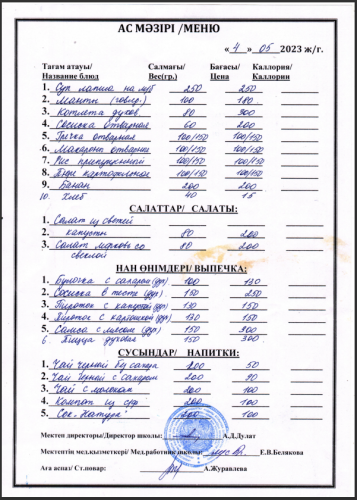 АС МӘЗІРІ /МЕНЮ
« 4 » 05 2023 ж/г.
Тағам атауы/ Салмағы/ Бағасы/ Каллория/
Название блюд Вес(гр.) Цена Каллории
1. Суп лапша на м/б 250 250
2. Манты (говяд.) 100 180
3. Котлета духов. 80 300
4. Сосиска отварная 60 200
5. Гречка отварная 100/150 100/150
6. Макароны отварные 100/150 100/150
7. Рис припущенный 100/150 100/150
8. Пюре картофельное 100/150 100/150
9. Банан 200 200
10. Хлеб 40 15
САЛАТТАР/ САЛАТЫ:
1. Салат из свежей
2. капусты 80 200
3. Салат морковь со 80 200
свеклой
НАН ӨНІМДЕРІ/ ВЫПЕЧКА:
1. Булочка с сахаром (дух) 100 130
2. Сосиска в тесте (дух) 150 250
3. Пирожок с капустой (дух) 130 150
4. Пирожок с картошкой (дух) 130 150
5. Самса с мясом (дух) 150 300
6. Пицца духовая 150 300
СУСЫНДАР/ НАПИТКИ:
1. Чай черный без сахара 200 50
2. Чай черный с сахаром 200 90
3. Чай с молоком 200 100
4. Компот из с/ф 200 100
5. Сок. Натура 200 100
Мектеп директоры/Директор школы: А.Д.Дулат
Мектептің мед.қызметкері/ Мед.работник школы: Е.В.Белякова
Аға аспаз/ Ст.повар: А.Журавлева